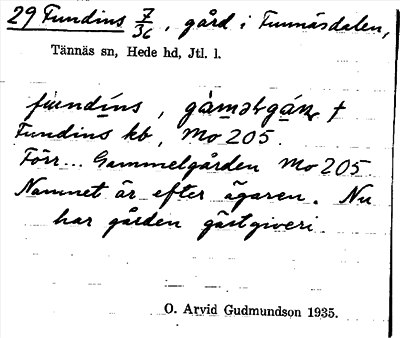 29 Fundins 7/36, gård i Funnäsdalen,
Tännäs sn, Hede hd, Jtl. l.
fundíns, gàməlgáɳ †
Fundins kb, Mo 205.
Förr... Gammelgården Mo 205.
Namnet är efter ägaren. Nu
har gården gästgiveri.
O. Arvid Gudmundson 1935.